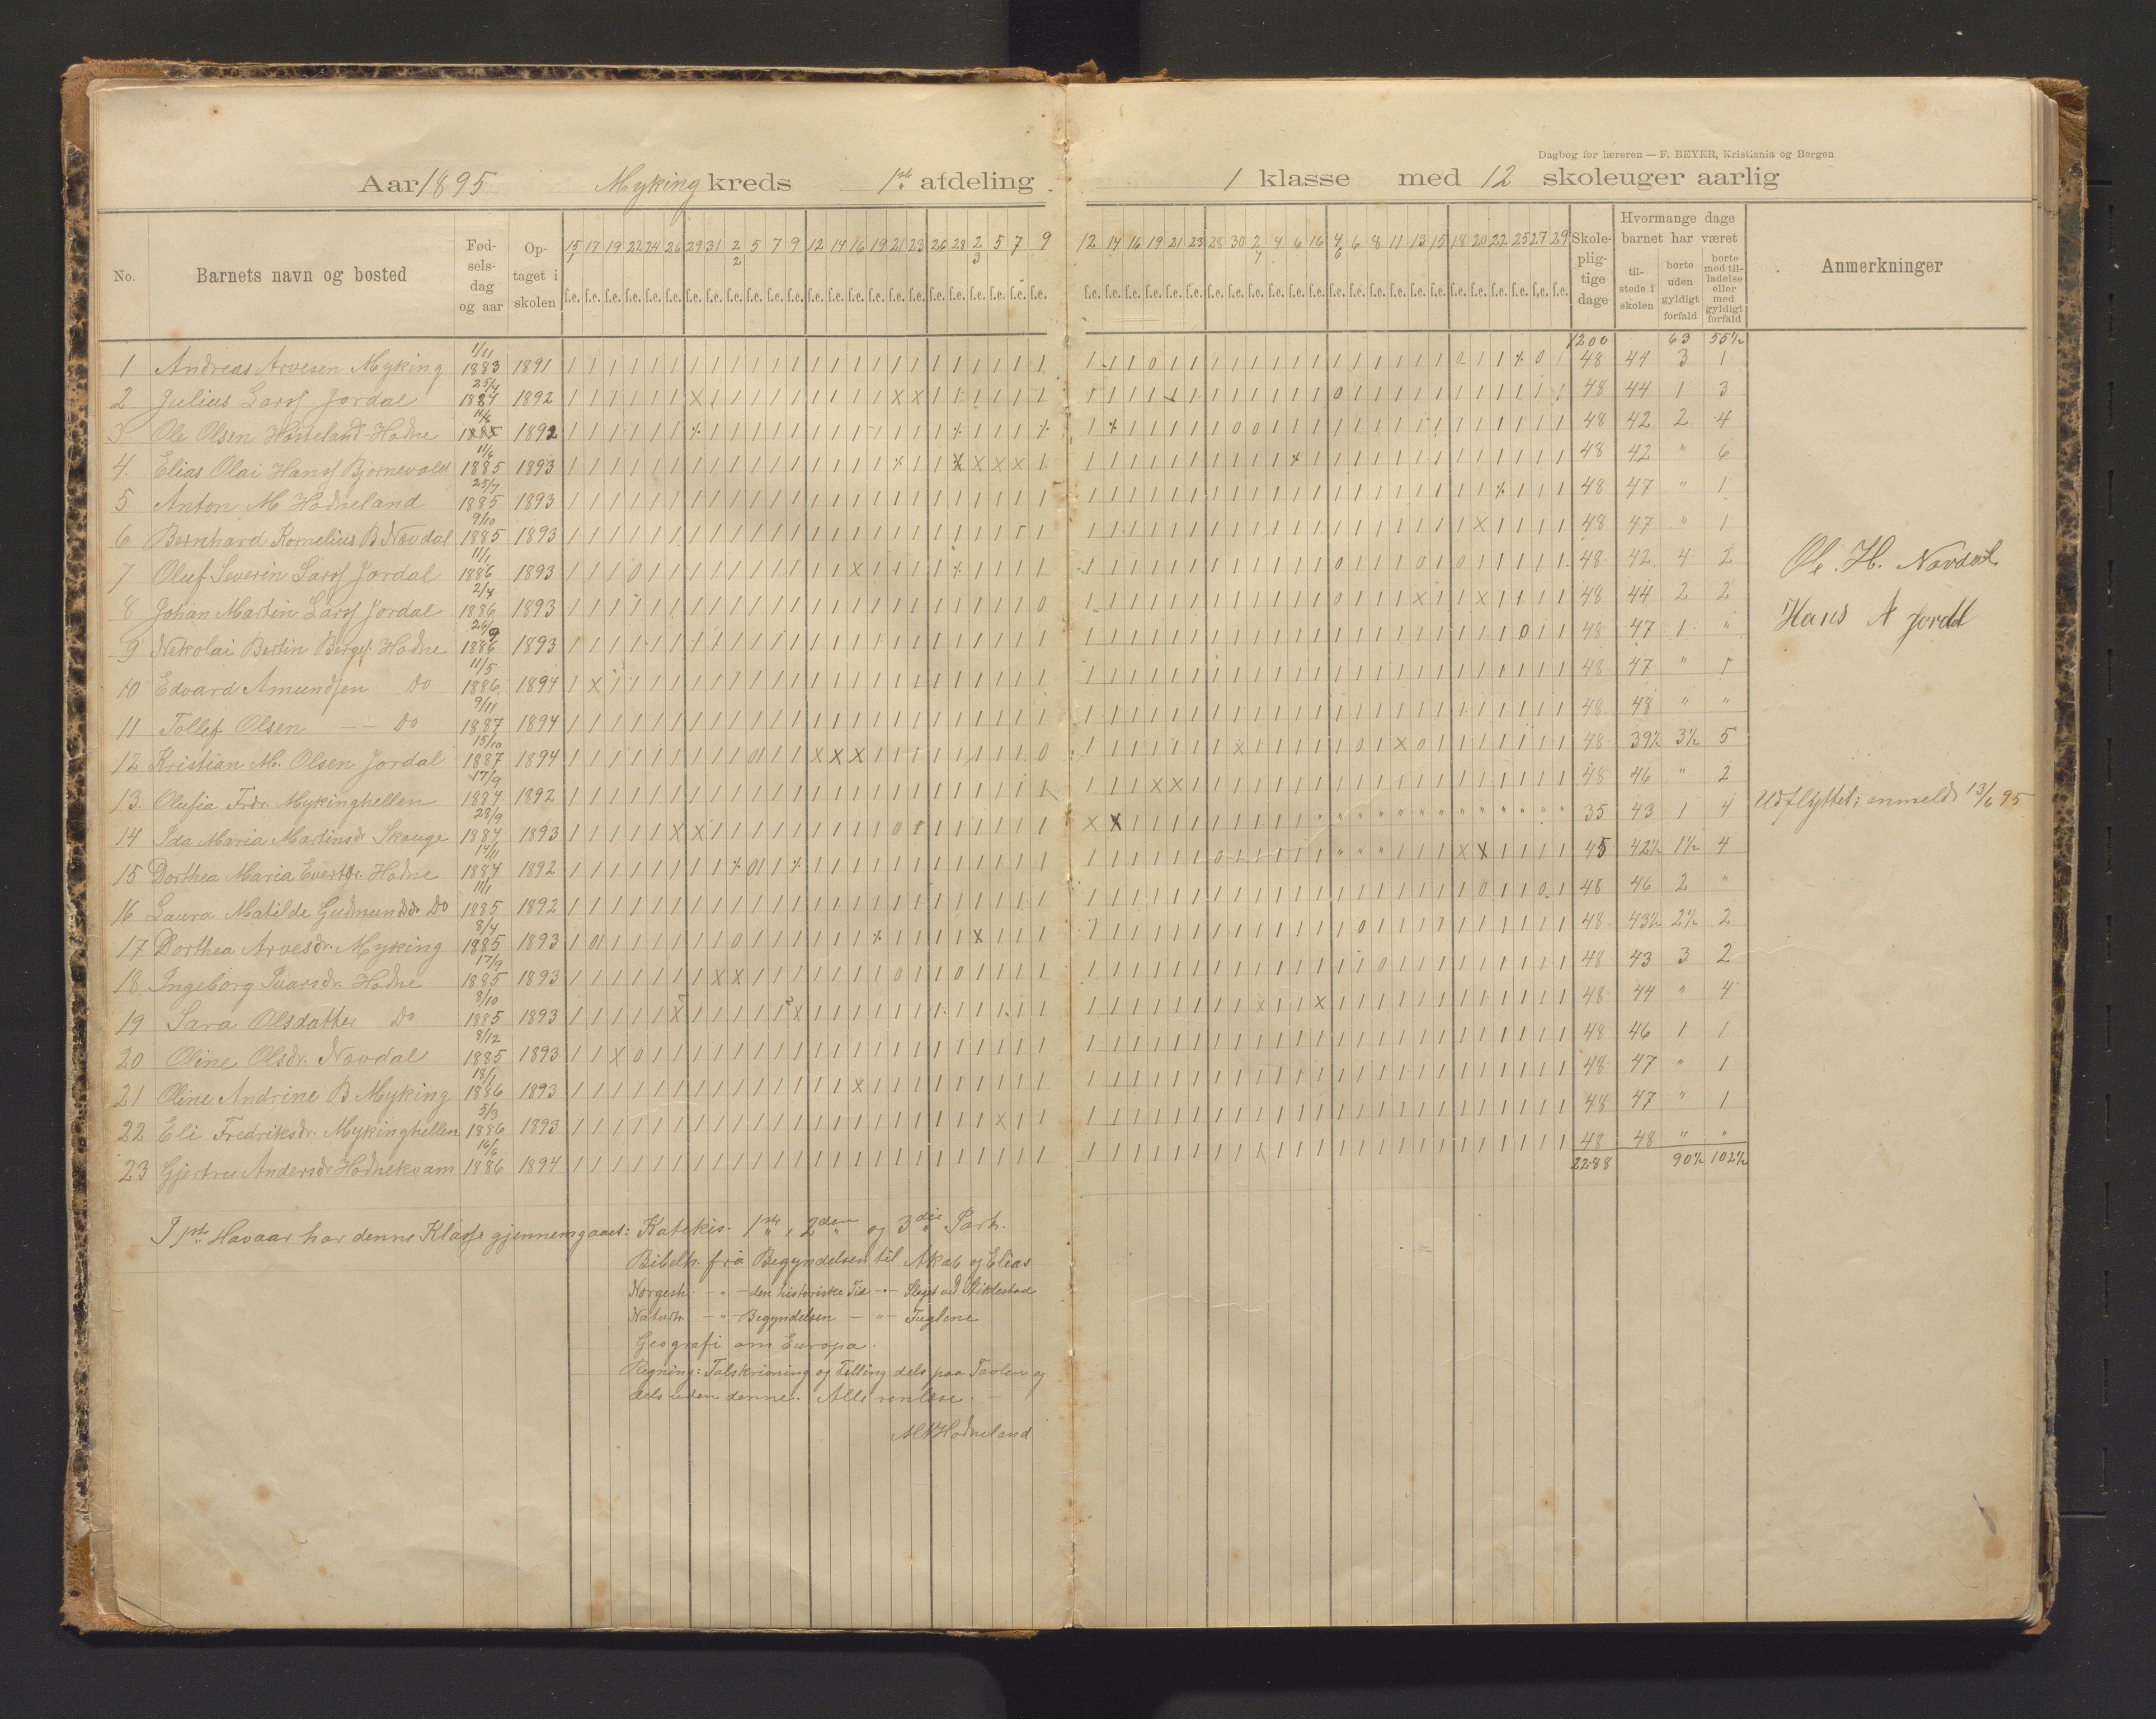 Dagbog for læreren — F. BEYER, Kristiania og Bergen
Aar 1895 Myking kreds 1ste afdeling 1 klasse med 12 skoleuger aarlig
No. Barnets navn og bosted Fødselsdag og aar Optaget i skolen 15/1 17 19 22 24 26 29 31 2/2 5 7 9 12 14 16 19 21 23 26 28 2/3 5 7 9 12 14 16 19 21 23 28 30 2/4 4 6 16 4/6 6 8 11 13 15 18 20 22 25 27 29 Skolepligtige dage Hvormange dage barnet har været tilstede i skolen borte uden gyldigt forfald borte med tilladelse eller med gyldigt forfald Anmerkninger
1200 63 55½
1 Andreas Arvesen Myking 1/11 1883 1891 48 44 3 1
2 Julius Larss Jordal 25/4 1884 1892 48 44 1 3
3 Ole Olsen Hosteland-Hodne 1885 1892 48 42 2 4
4. Elias Olai Hanss Bjørnevold 11/6 1885 1893 48 42 " 6
5 Anton M Hodneland 25/7 1885 1893 48 47 " 1
6 Bernhard Kornelius B Novdal 9/10 1885 1893 48 47 " 1
7 Oluf Severin Larss Jordal 11/1 1886 1893 48 42 4 2
Ole. H. Novdal
8 Johan Martin Larss Jordal 2/4 1886 1893 48 44 2 2
Hans A Jordal
9 Nekolai Bertin Berges. Hodne 26/9 1886 1893 48 47 1 "
10 Edvard Amundsen Do 11/5 1886 1894 48 47 " 1
11 Tollef Olsen — Do 9/11 1887 1894 48 48 " "
12 Kristian M. Olsen Jordal 15/10 1887 1894 48 39½ 3½ 5
13. Olufia Frdr. Mykinghellen 17/9 1884 1892 48 46 " 2
14 Ida Maria Martinsdr Skauge 28/9 1884 1893 35 43 1 4 Udflyttet; anmeldt 13/6 95
15 Dorthea Maria Evertsdr. Hodne 14/11 1884 1892 45 42½ 1½ 4
16 Laura Matilde Gudmundsdr Do 11/1 1885 1892 48 46 2 "
17 Dorthea Arvesdr. Myking 8/4 1885 1893 48 43½ 2½ 2
18 Ingeborg Ivarsdr. Hodne 17/9 1885 1893 48 43 3 2
19 Sara Olsdatter Do 8/10 1885 1893 48 44 " 4
20 Oline Olsdr. Novdal 8/12 1885 1893 48 46 1 1
21 Oline Andrine B Myking 18/1 1886 1893 48 47 " 1
22 Eli Fredriksdr. Mykinghellen 5/3 1886 1893 48 47 " 1
23 Gjertru Andersdr Hodnekvam 16/6 1886 1894 48 48 " "
2288 90½ 102½
I 1ste Havaar har denne Klasse gjennemgaaet: Katekis. 1ste, 2den og 3die Part.
Bibelh. fra Begyndelsen til Akab og Elias
Norgesh. — " — den historiske Tid — " — Slaget ved Stiklestad
Naturh. — " — Begyndelsen — " — Fuglene
Geografi om Europa.
Regning: Talskrivning og Telling dels paa Tavlen og
dels uden denne. Alle renlese. —
M Hodneland